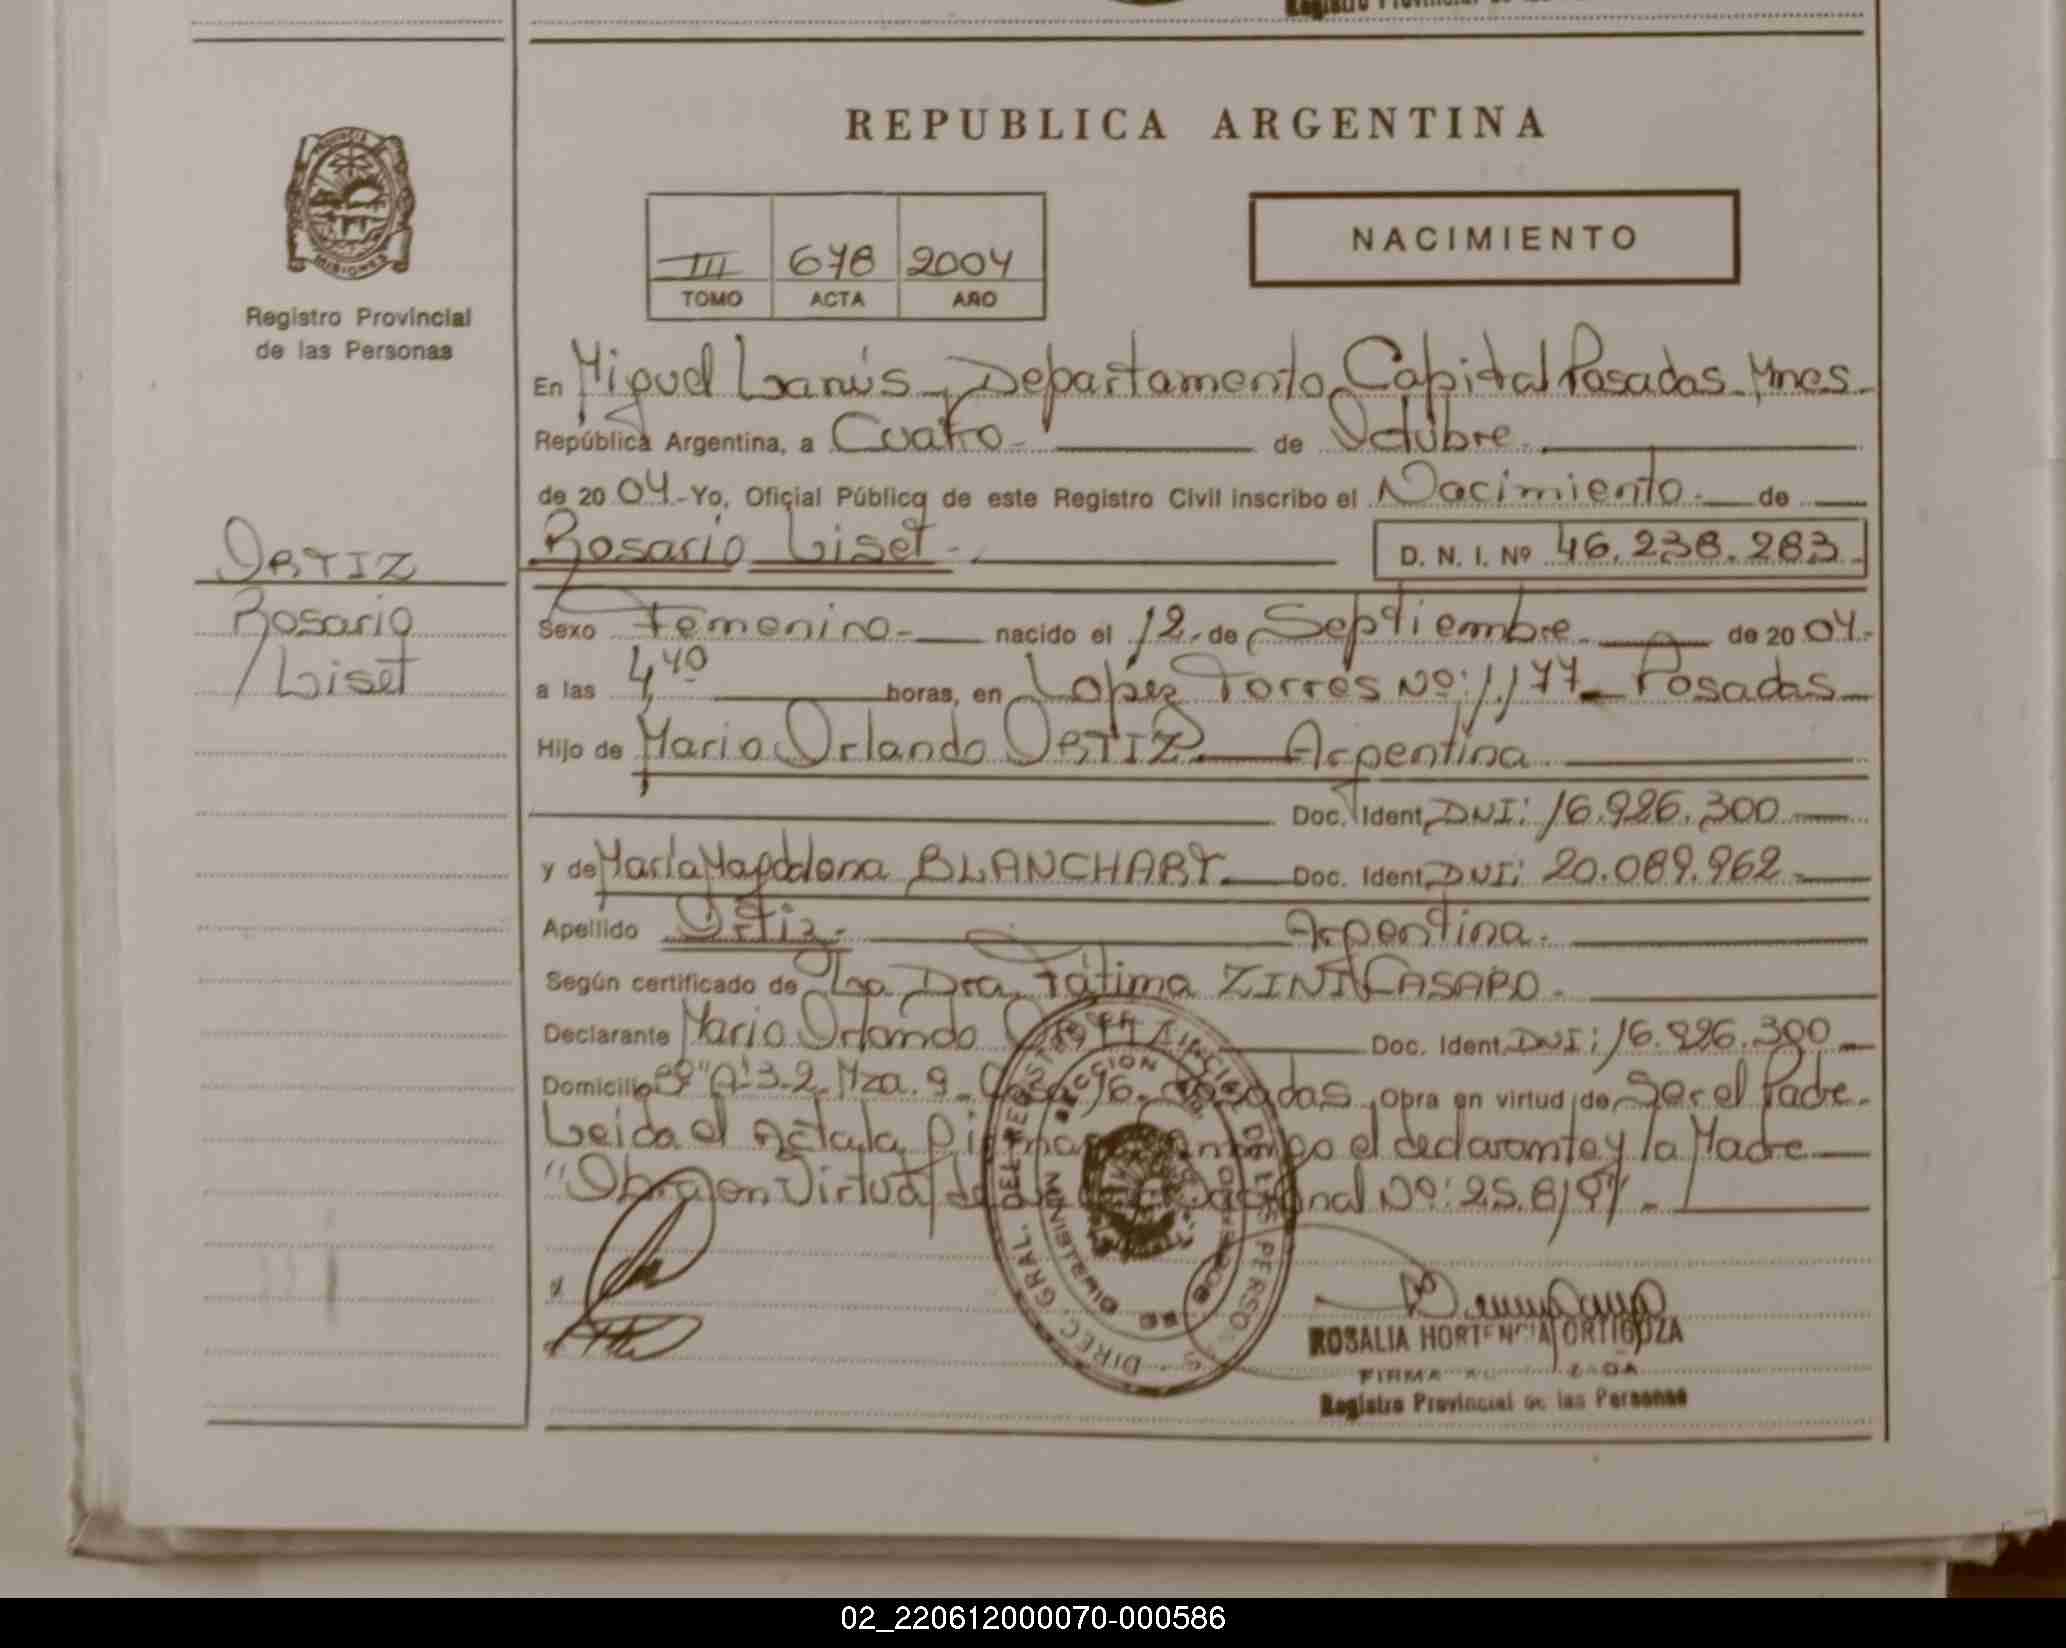 REPUBLICA ARGENTINA
PROVINCIA
MISIONES
Registro Provincial
de las Personas
III 678 2004
TOMO ACTA AÑO
NACIMIENTO
En Miguel Lanús, Departamento Capital Posadas Mnes.
República Argentina, a Cuatro de Octubre
de 2004 - Yo, Oficial Público de este Registro Civil inscribo el Nacimiento de
ORTIZ
Rosario
Liset
Rosario Liset - D. N. I. Nº 46.238.283
Sexo Femenino nacido el 12 de Septiembre de 2004
a las 4,40 horas, en Lopez Torres Nº: 1.177 Posadas
Hijo de Mario Orlando ORTIZ Argentina
Doc. Ident. DNI: 16.926.300
y de María Magdalena BLANCHART Doc. Ident. DNI: 20.089.962
Apellido Ortiz Argentina
Según certificado de La Dra. Fátima ZINI CASARO
Declarante Mario Orlando Doc. Ident. DNI: 16.926.300
Domicilio "A" 3-2 Mza. 9 Casa 16 Posadas Obra en virtud de Ser el Padre
Leida el Acta la firman conmigo el declarante y la Madre
"Obra en Virtud Nº: 25.8/97
DIREC. GRAL. DEL REGISTRO PROVINCIAL DE LAS PERSONAS
ROSALIA HORTENCIA ORTIGOZA
FIRMA AUTORIZADA
Registro Provincial de las Personas
02_220612000070-000586